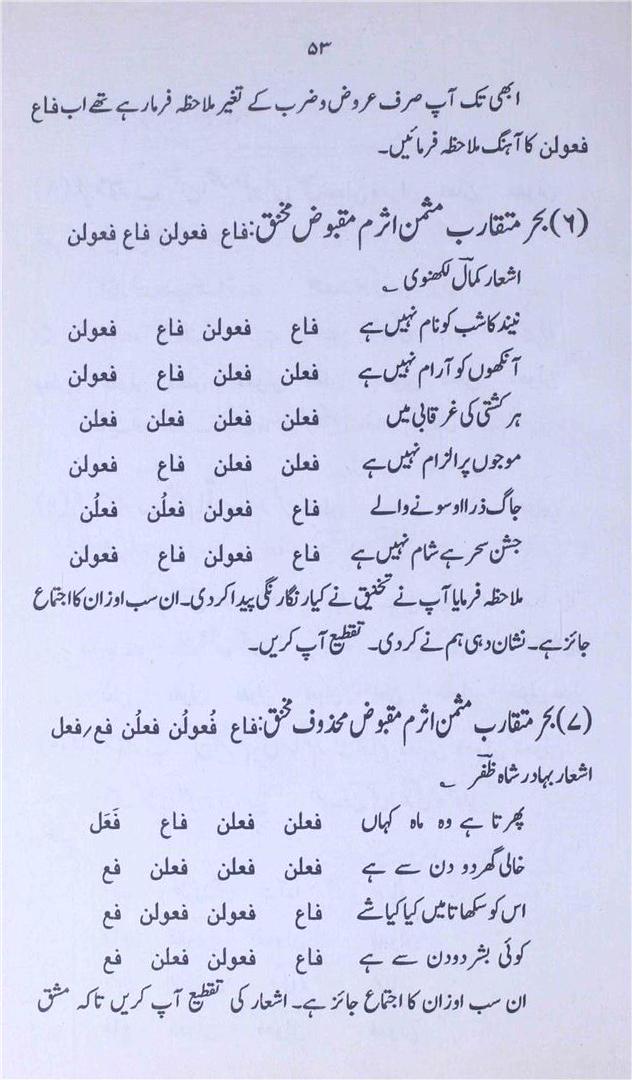 ۵۳
ابھی تک آپ صرف عروض و ضرب کے تغیر ملاحظہ فرما رہے تھے اب فاع
فعولن کا آہنگ ملاحظہ فرمائیں۔
(۶) بحر متقارب مثمن اثرم مقبوض مخنق: فاع فعولن فاع فعولن
اشعار کمالؔ لکھنوی ؎
نیند کا شب کو نام نہیں ہے فاع فعولن فاع فعولن
آنکھوں کو آرام نہیں ہے فعلن فعلن فاع فعولن
ہر کشتی کی غرقابی میں فعلن فعلن فعلن فعلن
موجوں پر الزام نہیں ہے فعلن فعلن فاع فعولن
جاگ ذرا او سونے والے فاع فعولن فعلُن فعلُن
جشن سحر ہے شام نہیں ہے فاع فعولن فاع فعولن
ملاحظہ فرمایا آپ نے تخنیق نے کیا رنگارنگی پیدا کردی۔ ان سب اوزان کا اجتماع
جائز ہے۔ نشان دہی ہم نے کردی۔ تقطیع آپ کریں۔
(۷) بحر متقارب مثمن اثرم مقبوض محذوف مخنق: فاع فُعولُن فعلُن فع/فعل
اشعار بہادر شاہ ظفرؔ ؎
پھرتا ہے وہ ماہ کہاں فعلن فعلن فاع فَعَل
خالی گھر دو دن سے ہے فعلن فعلن فعلن فع
اس کو سکھاتا میں کیا کیا شے فاع فعولن فعولن فع
کوئی بشر دو دن سے ہے فاع فعولن فعلن فع
ان سب اوزان کا اجتماع جائز ہے۔ اشعار کی تقطیع آپ کریں تاکہ مشق